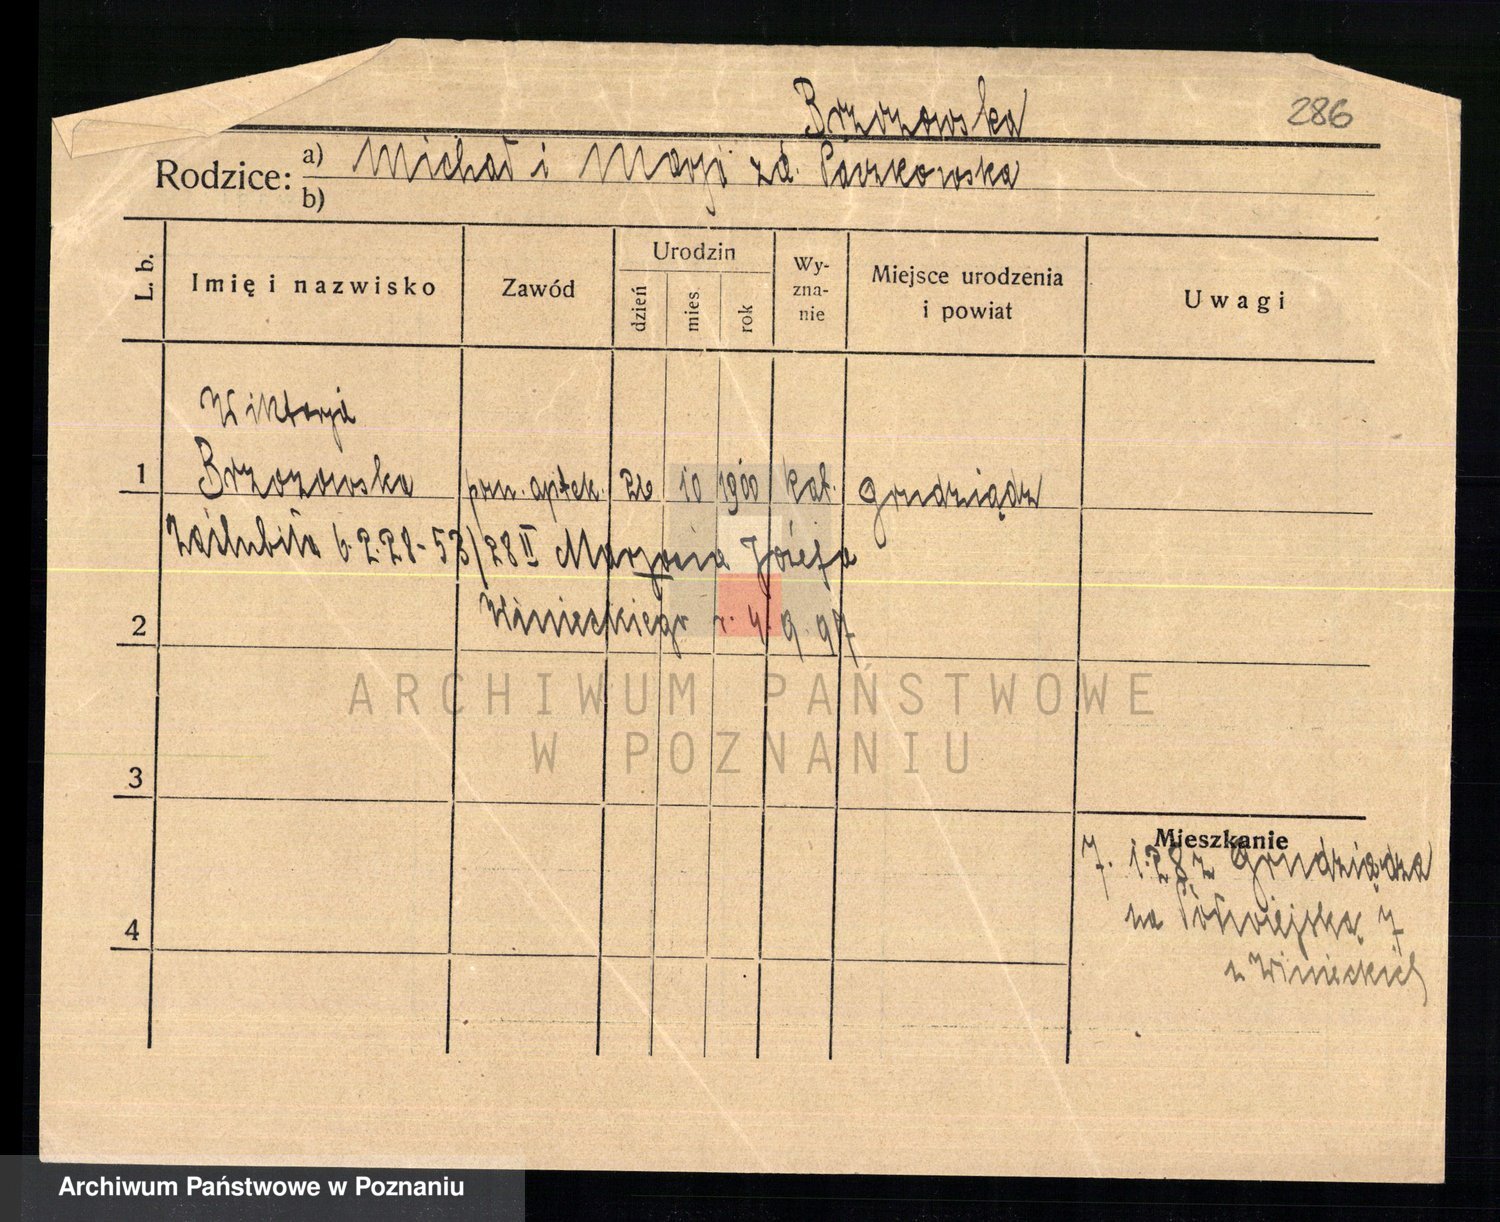 Brzozowska
286
Rodzice: a) Michał i Marja zd. Paczkowska
b)
L. b. Imię i nazwisko Zawód Urodzin dzień mies. rok Wy-zna-nie Miejsce urodzenia i powiat Uwagi
Wiktorja
1 Brzozowska pom. aptek. 26 10 1900 kat. Grudziądz
zaślubiła 6.2.28 - 53/28 II Józefa
2 Winieckiego r. 4.9.97
ARCHIWUM PAŃSTWOWE
W POZNANIU
3
Mieszkanie
7. 1.28 z Grudziądza
4 na Półwiejską 7
z Winieckich
Archiwum Państwowe w Poznaniu